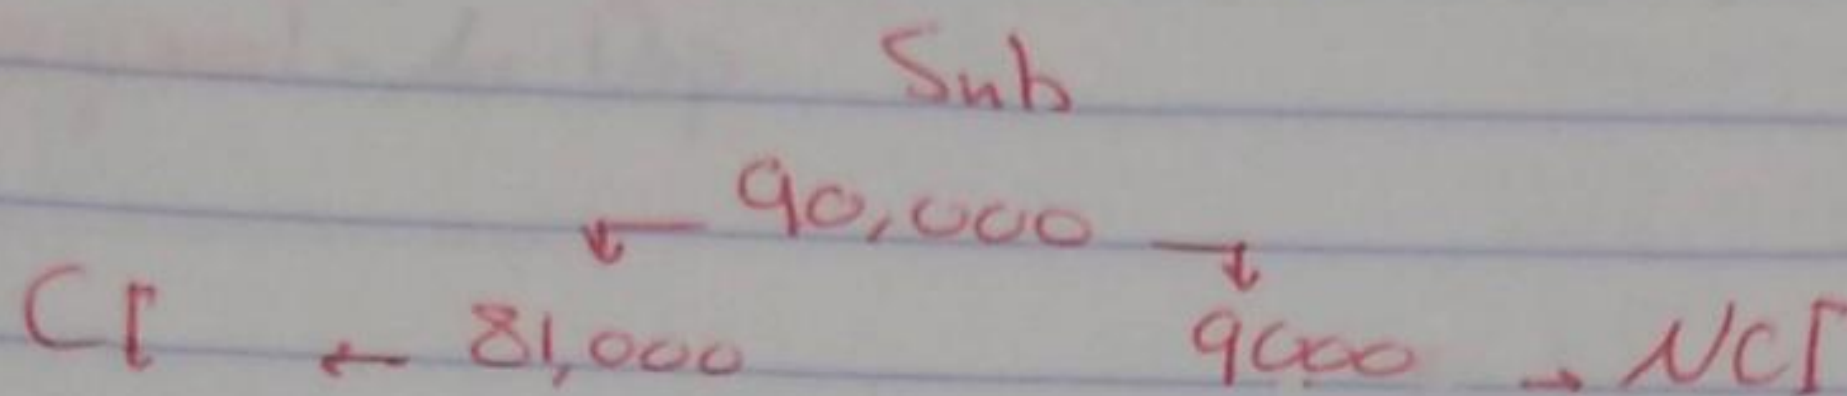 Sub
90,000
CI ← 81,000 9000 → NCI